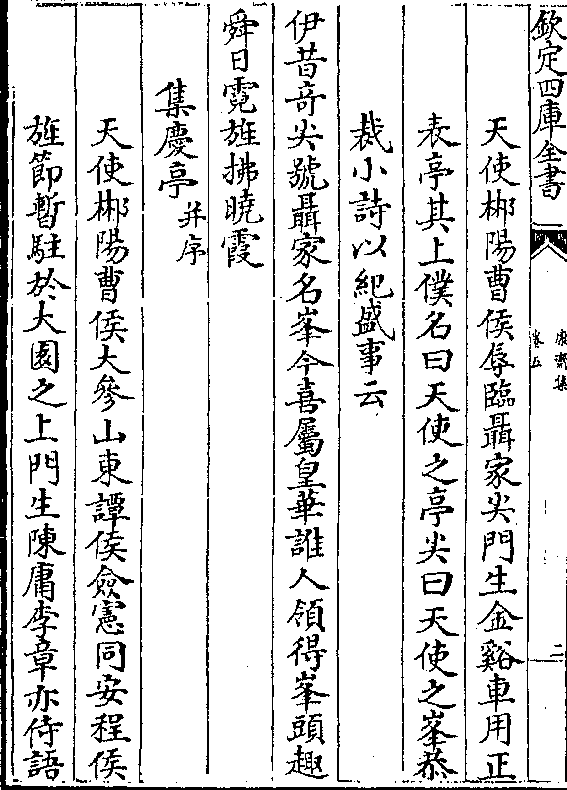 欽定四庫全書
卷五
二
天使郴陽曹侯辱臨聶家尖門生金谿車用正
表亭其上僕名曰天使之亭尖曰天使之峯恭
裁小詩以紀盛事云
伊昔奇尖號聶家名峯今喜屬皇華誰人領得峯頭趣
舜日霓旌拂曉霞
集慶亭并序
天使郴陽曹侯大參山東譚侯僉憲同安程侯
旌節暫駐於大園之上門生陳庸李章亦侍語